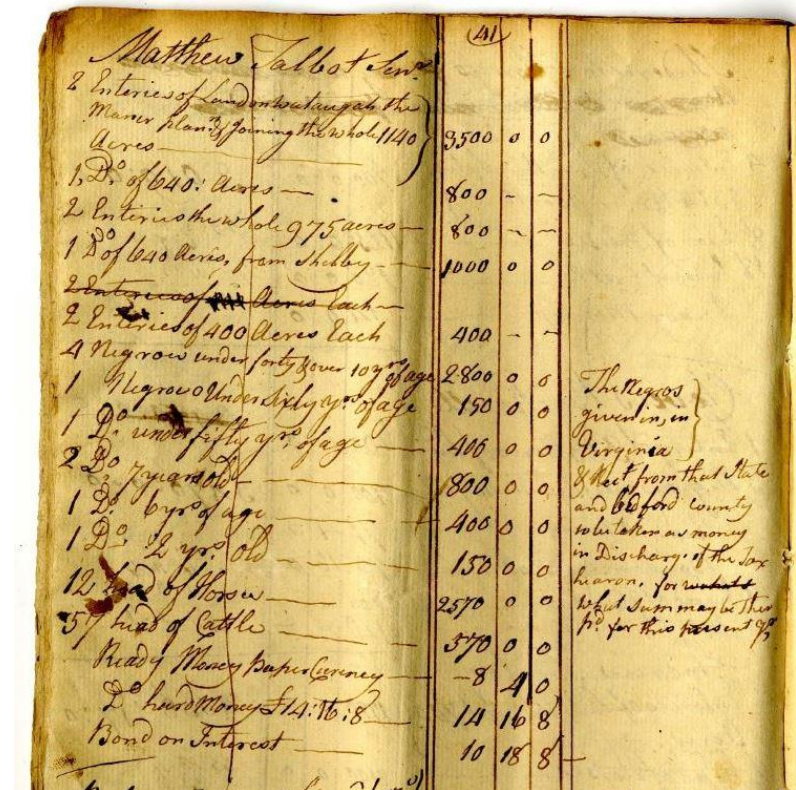 (41)
Matthew Talbot Senr.
2 Enteries of Land on Wataugah the
Maner plann. & Joining the whole 1140
Acres 3500 0 0
1, Do. of 640: Acres — 800 - -
2 Enteries the whole 975 acres — 800 - -
1 Do of 640 Acres, from Shelby — 1000 0 0
2 Enteries of Acres Each —
2 Enteries of 400 Acres Each 400 - -
4 Negrow under forty & over 10 yrs. of age 2800 0 0
1 Negrow Under Sixty yrs. of age 150 0 0
1 Do. under fifty yrs. of age — 400 0 0
2 Do. 7 years old — 800 0 0
1 Do. 6 yrs of age 400 0 0
1 Do. 2 yrs. old 150 0 0
12 head of Horses 2570 0 0
57 head of Cattle 570 0 0
Ready Money paper Curency — 8 4 0
Do hard Money £14:16:8 — 14 16 8
Bond on Interest — 10 18 8 —
The Negros
given in, in
Virginia
& Rect. from that State
and bedford county
to be taken as money
in Discharg. of the Tax
hearon, for
what sum may be ther
pd for this present yr,